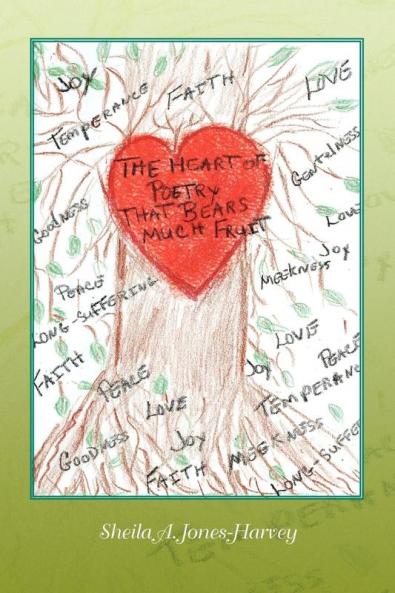 JOY
TEMPERANCE
FAITH
LOVE
THE HEART OF
POETRY
THAT BEARS
MUCH FRUIT
GENTELNESS
GOODNESS
LOVE
JOY
MEEKNESS
PEACE
LONG-SUFFERING
LOVE
PEACE
FAITH
PEACE
JOY
TEMPERANC
LOVE
GOODNESS
JOY
MEEKNESS
FAITH
LONG-SUFFE
Sheila A. Jones-Harvey